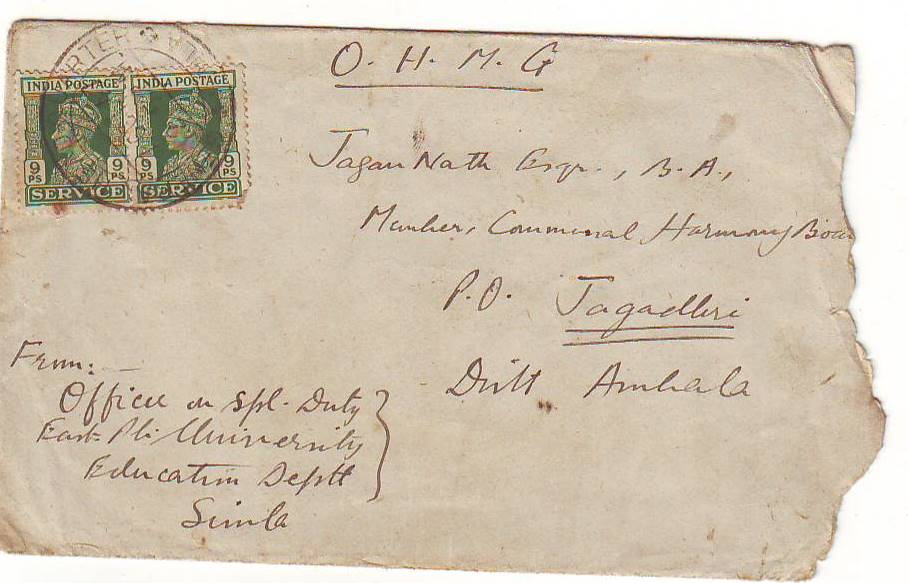 O. H. M. G
INDIA POSTAGE INDIA POSTAGE
9 PS 9 PS 9 PS 9 PS
SERVICE SERVICE
Jagan Nath Esqr., B.A.,
Member, Communal Harmony Boa
P.O. Jagadhri
Distt Ambala
From:—
Officer on Spl. Duty
East Pb. University
Education Deptt
Simla